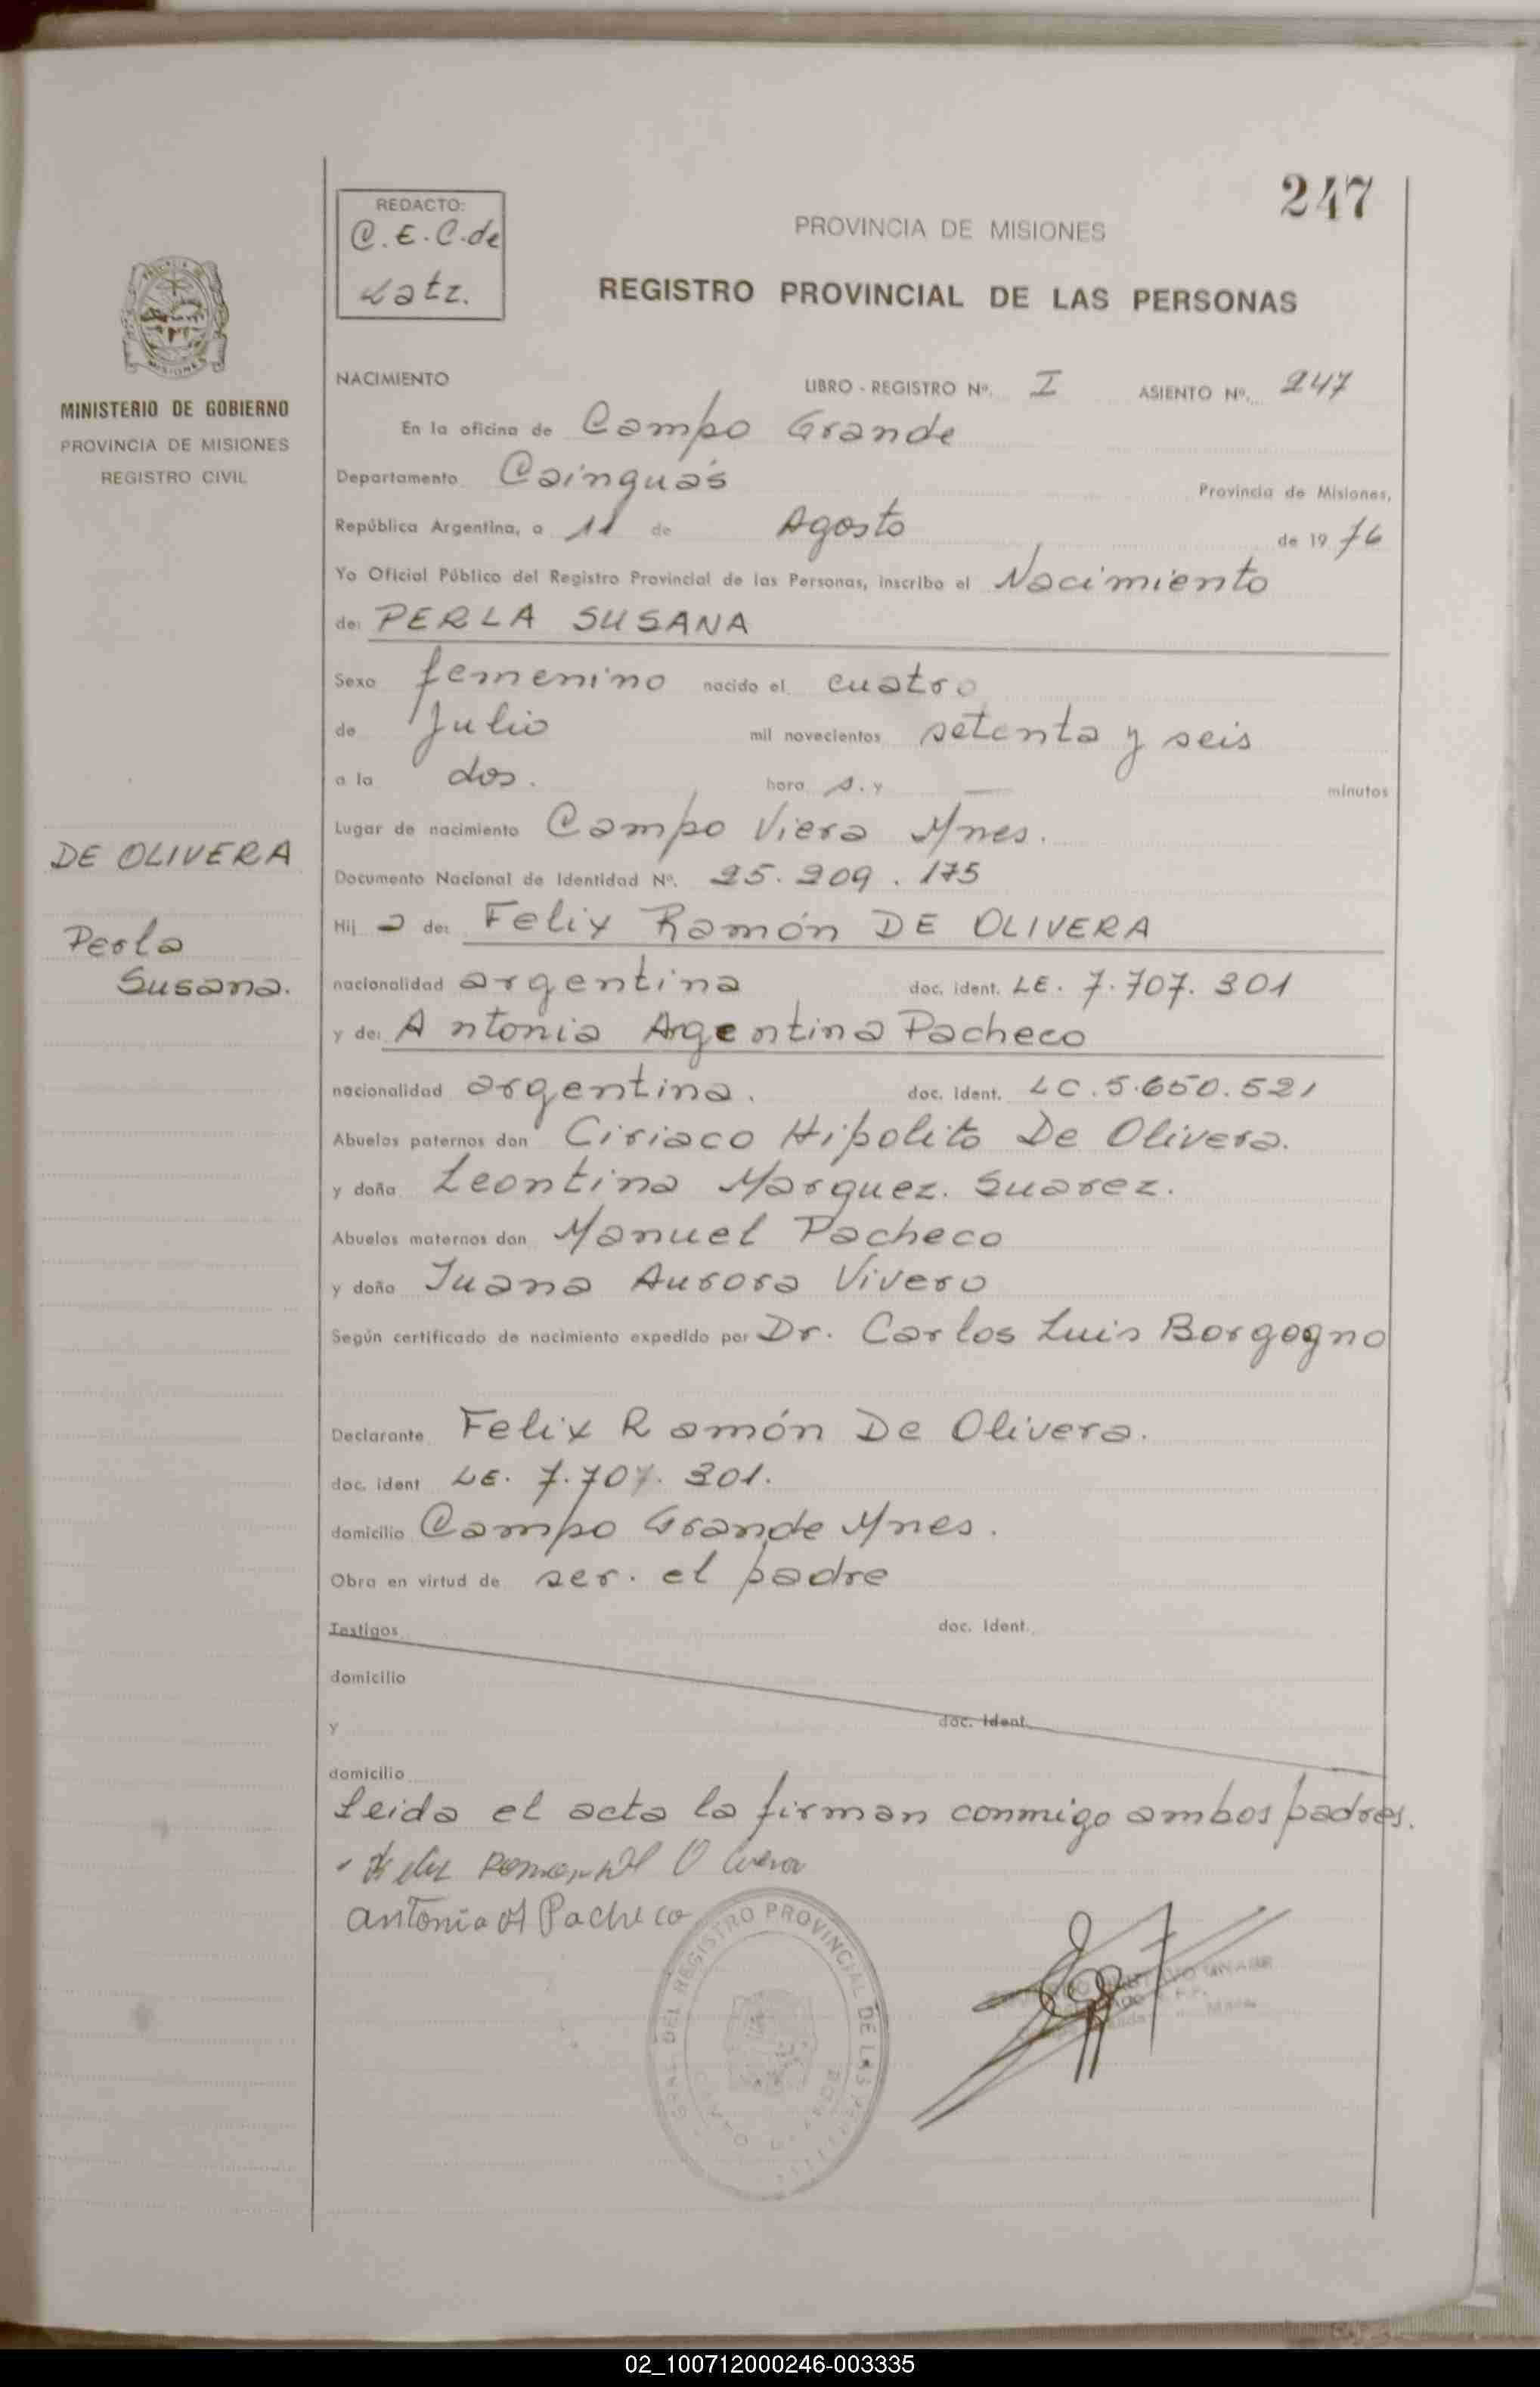 247
REDACTO:
C.E.C.de
Latz.
PROVINCIA DE MISIONES
REGISTRO PROVINCIAL DE LAS PERSONAS
MISIONES
MINISTERIO DE GOBIERNO
PROVINCIA DE MISIONES
REGISTRO CIVIL
NACIMIENTO LIBRO - REGISTRO Nº. I ASIENTO Nº. 247
En la oficina de Campo Grande
Departamento Cainguás Provincia de Misiones,
República Argentina, a 11 de Agosto de 19 76
Yo Oficial Público del Registro Provincial de las Personas, inscribo el Nacimiento
de: PERLA SUSANA
Sexo femenino nacido el cuatro
de Julio mil novecientos setenta y seis
a la dos. hora s. y — minutos
Lugar de nacimiento Campo Viera Mnes.
DE OLIVERA
Documento Nacional de Identidad Nº. 25.209.175
Hij a de: Felix Ramón DE OLIVERA
Perla
Susana.
nacionalidad argentina doc. ident. LE. 7.707.301
y de: Antonia Argentina Pacheco
nacionalidad argentina. doc. ident. LC. 5.650.521
Abuelos paternos don Ciriaco Hipolito De Olivera.
y doña Leontina Marquez. Suarez.
Abuelos maternos don Manuel Pacheco
y doña Juana Aurora Vivero
Según certificado de nacimiento expedido por Dr. Carlos Luis Borgogno
Declarante Felix Ramón De Olivera.
doc. ident LE. 7.707.301.
domicilio Campo Grande Mnes.
Obra en virtud de ser. el padre
Testigos doc. ident.
domicilio
y doc. ident.
domicilio
Leida el acta la firman conmigo ambos padres.
Antonia A Pacheco
REGISTRO PROVINCIAL DE LAS
02_100712000246-003335